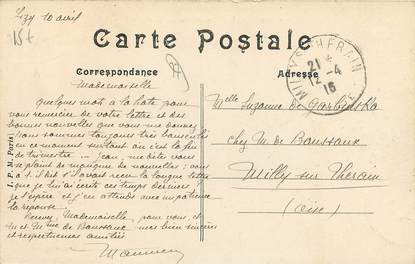 Lizy 10 avril
15f
Carte Postale
Correspondance
Adresse
MILLY-S-THERAIN
21
12-4
16
OISE
Mademoiselle
Quelques mots à la hâte pour
vous remercier de votre lettre et des
bonnes nouvelles que vous me donnez
Nous sommes toujours très bousculés
en ce moment surtout au c'est la fin
de trimestre Jean me dites vous
se plaint de manque de nouvelles; vous
a t-il dit s'il avait reçu la longue lettre
que je lui ai écrite ces temps derniers
je l'espère et j'en attends avec impatience
la réponse.
Recevez, Mademoiselle, pour vous et
M et Mme de Baussaux mes bien sincères
et respectueuses amitiés
Melle Suzanne de
chez M. de Baussaux
Milly sur Thérain
(Oise)
I. P. M. Paris